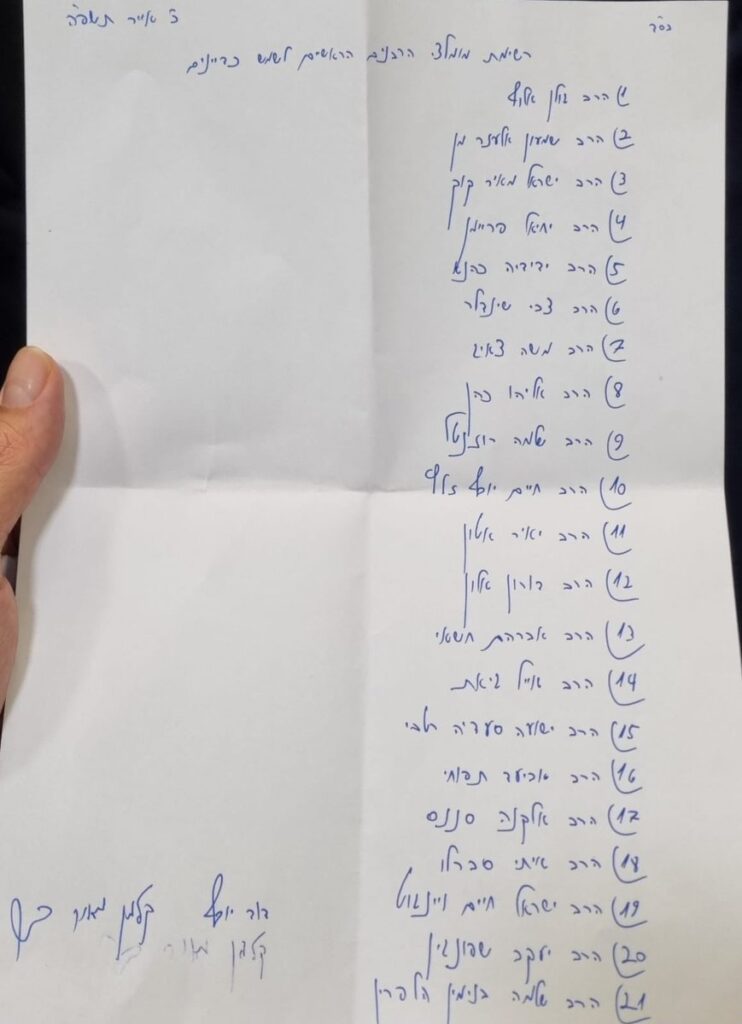 בס"ד
ב' אייר תשפ"ה
רשימת מומלצי הרבנים הראשים לשמש כדיינים
1) הרב גולן אלוף
2) הרב שמעון אלעזר מן
3) הרב ישראל מאיר קוק
4) הרב יחיאל פריימן
5) הרב ידידיה כהנא
6) הרב צבי שינדלר
7) הרב משה צאיג
8) הרב אליהו כהן
9) הרב שלמה רוזנטל
10) הרב חיים יוסף זליף
11) הרב יאיר אטון
12) הרב דורון אלון
13) הרב אברהם חשאי
14) הרב אייל גיאת
15) הרב ישועה סעדיה רטבי
16) הרב אביעד תפוחי
17) הרב אלקנה סננס
18) הרב איתי סברלו
19) הרב ישראל חיים ויינגוט
20) הרב יעקב שפונגין
21) הרב שלמה בנימין הלפרין
דוד יוסף קלמן מאיר בר
קלמן מאיר